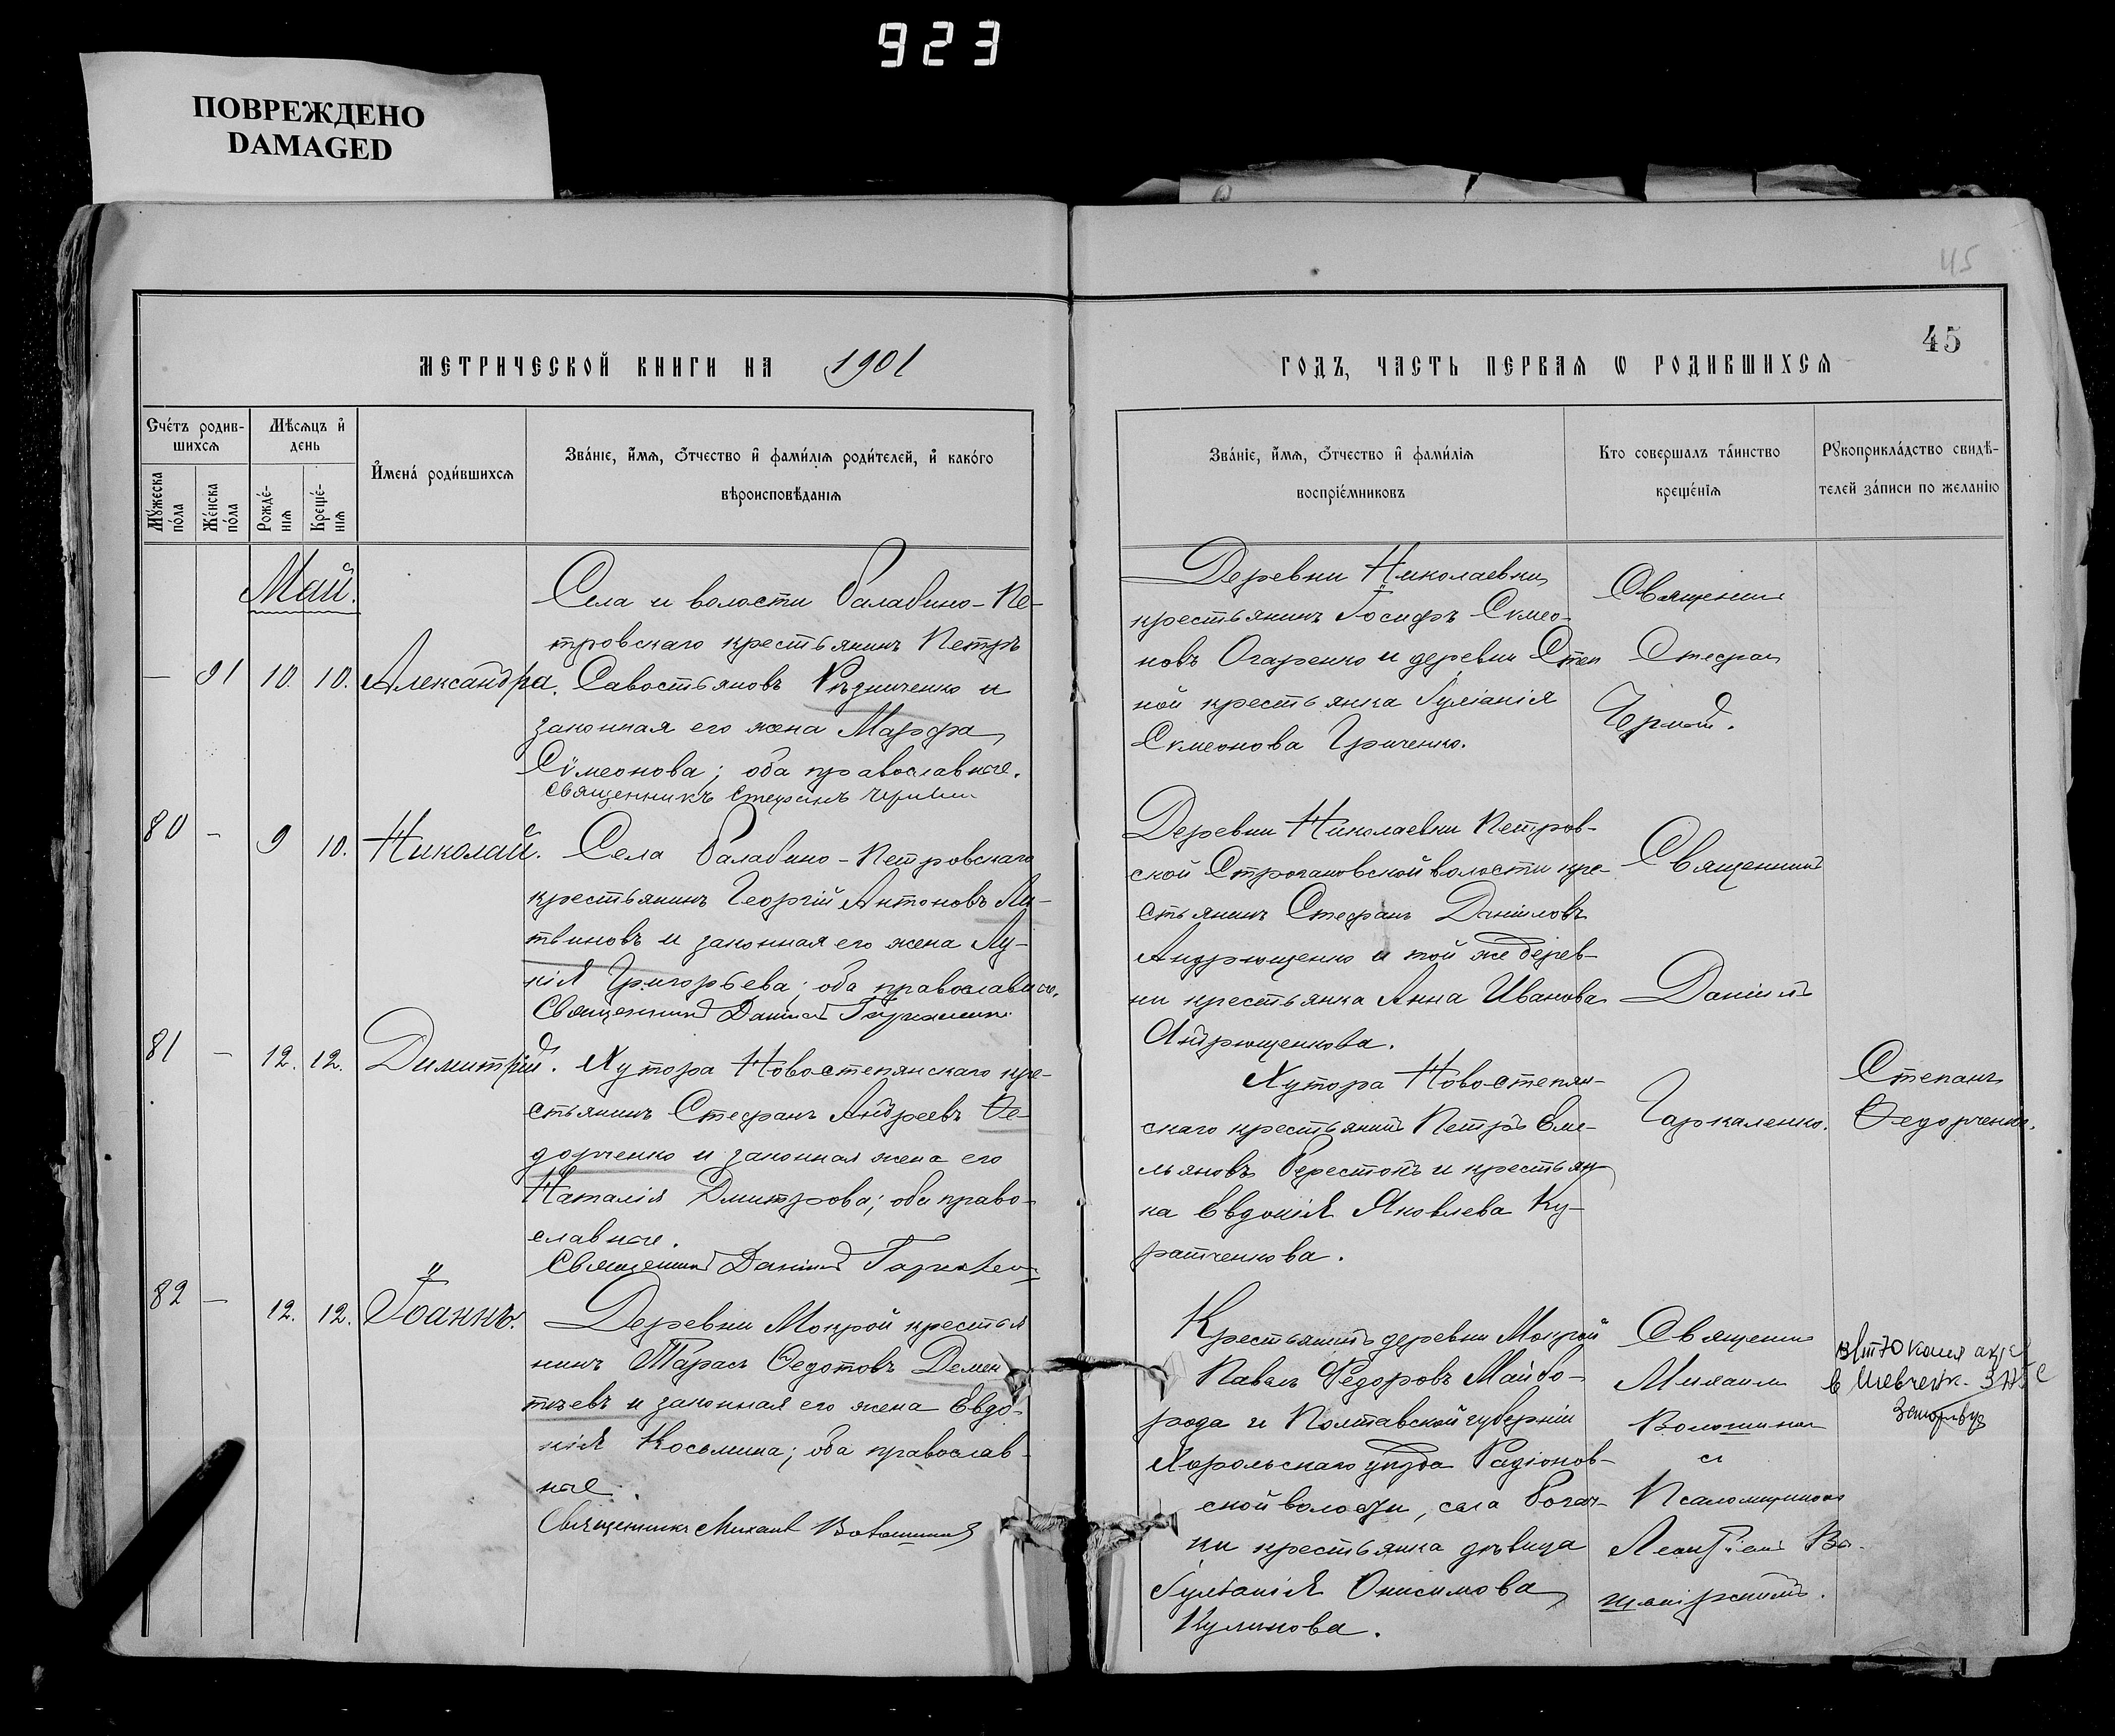 923
ПОВРЕЖДЕНО
DAMAGED
45
45
МЕТРИЧЕСКОЙ КНИГИ НА 1901
ГОДЪ, ЧАСТЬ ПЕРВАЯ Ѡ РОДИВШИХСЯ
Счётъ родив-
шихся
Мѣсяцъ и
день
Мужеска
пола
Женска
пола
Рожде-
нія
Креще-
нія
Имена родившихся
Званіе, имя, отчество и фамилія родителей, и какого
вѣроисповѣданія
Званіе, имя, отчество и фамилія
воспріемниковъ
Кто совершалъ таинство
крещенія
Рукоприкладство свидѣ-
телей записи по желанію
Май.
— 91 10. 10. Александра.
Села и волости Балабино-Пе-
тровскаго крестьянинъ Петръ
Савостьяновъ Рѣзниченко и
законная его жена Марфа
Сѵмеонова; оба православные.
Священникъ Стефанъ
Деревни Николаевки
крестьянинъ Іосифъ Сѵмео-
новъ Огаренко и деревни Степ
ной крестьянка Іуліанія
Сѵмеонова Гриченко.
Священник
Стефан
80 — 9 10. Николай.
Села Балабино-Петровскаго
крестьянинъ Георгій Антоновъ Ли-
твиновъ и законная его жена Лу-
кія Григорьева; оба православные.
Священникъ Даніилъ Гаркаленко
Деревни Николаевки Петров-
ской Строгановской волости кре-
стьянинъ Стефанъ Даніиловъ
Андрющенко и той же дерев-
ни крестьянка Анна Иванова
Андрющенкова.
Священникъ
Даніилъ
Гаркаленко.
81 — 12. 12. Димитрій.
Хутора Новостепянскаго кре-
стьянинъ Стефанъ Андреевъ Ѳе-
дорченко и законная жена его
Наталія Дмитрова; оба право-
славные.
Священникъ Даніилъ Гаркален
Хутора Новостепян-
скаго крестьянинъ Петръ Еме-
льяновъ Берестокъ и крестьян
ка Евдокія Яковлева Ку-
ратченкова.
Степанъ
Ѳедорченко.
82 — 12. 12. Іоаннъ.
Деревни Мокрой крестья
нинъ Тарасъ Ѳедотовъ Демен
тьевъ и законная его жена Евдо-
кія Косьмина; оба православ-
ные.
Священникъ Михаилъ Волошиновъ
Крестьянинъ деревни Мокрой
Павелъ Ѳедоровъ Майбо-
рода и Полтавской губерніи
Хорольскаго уѣзда Радіонов-
ской волости, села Богач-
ки крестьянка дѣвица
Іуліанія Онисимова
Куликова.
Священник
Михаилъ
Волошинов
съ
Псаломщиком